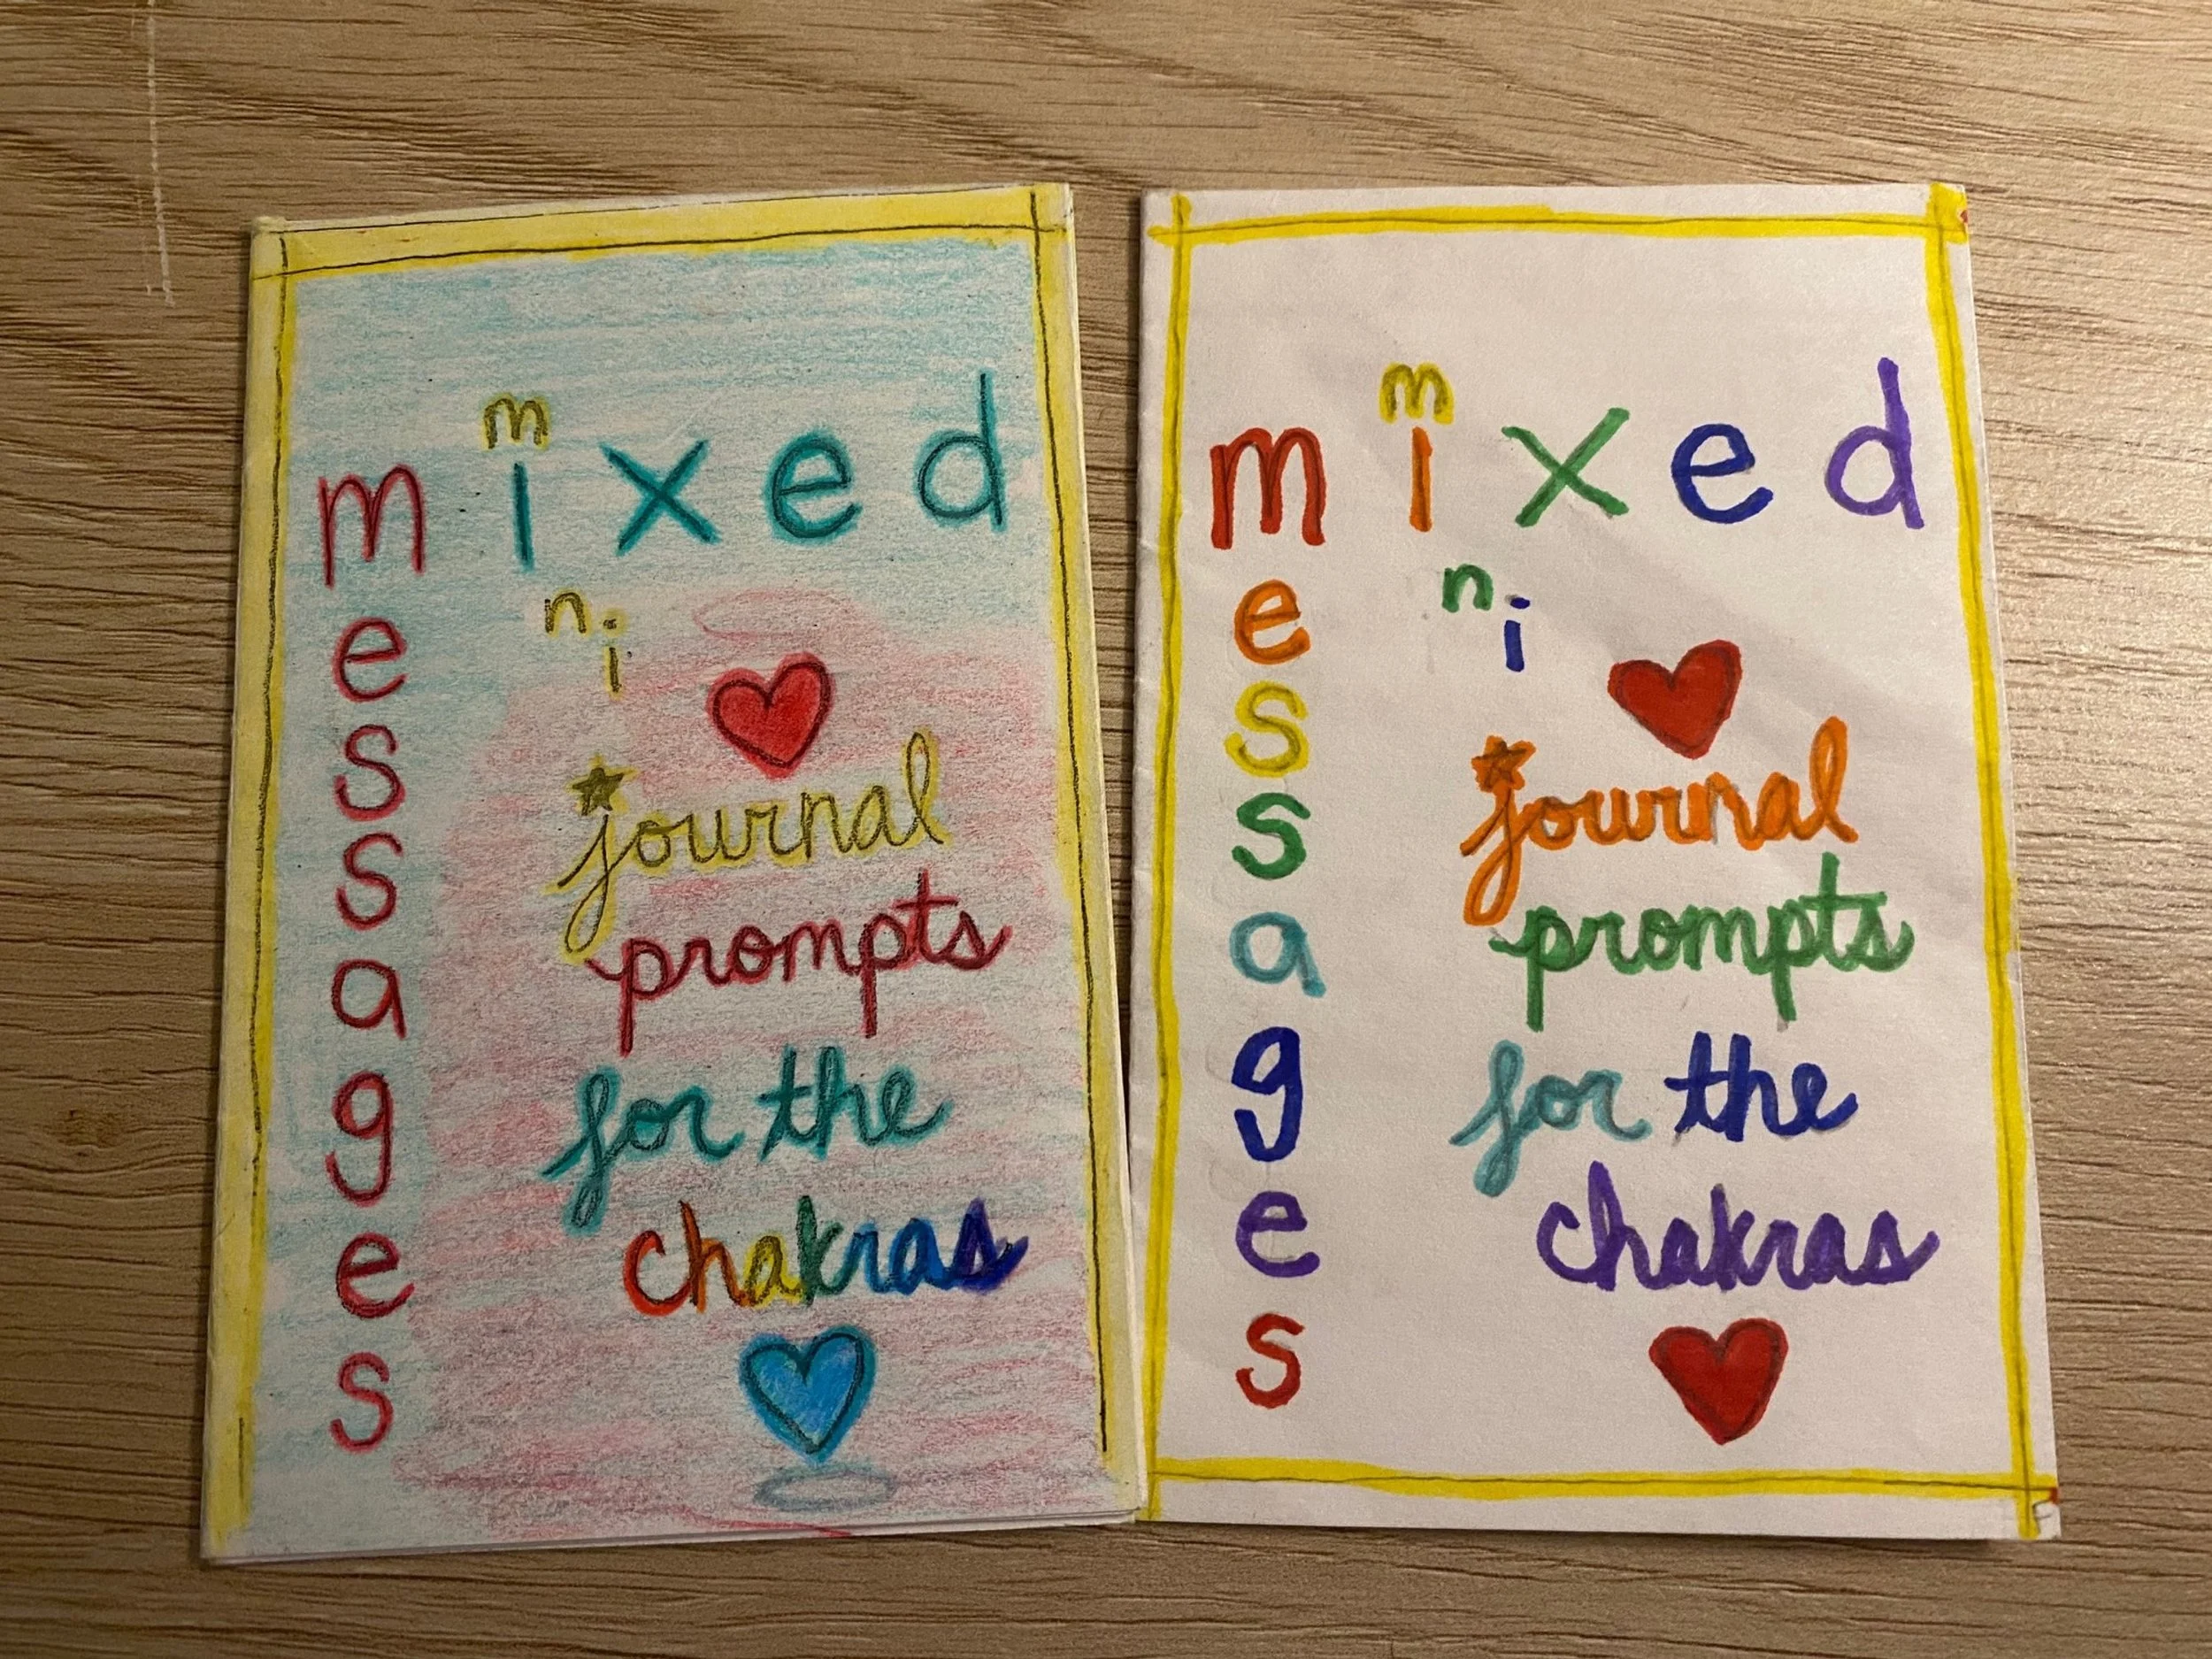 mixed
messages
mini
journal
prompts
for the
chakras
mixed
messages
mini
journal
prompts
for the
chakras